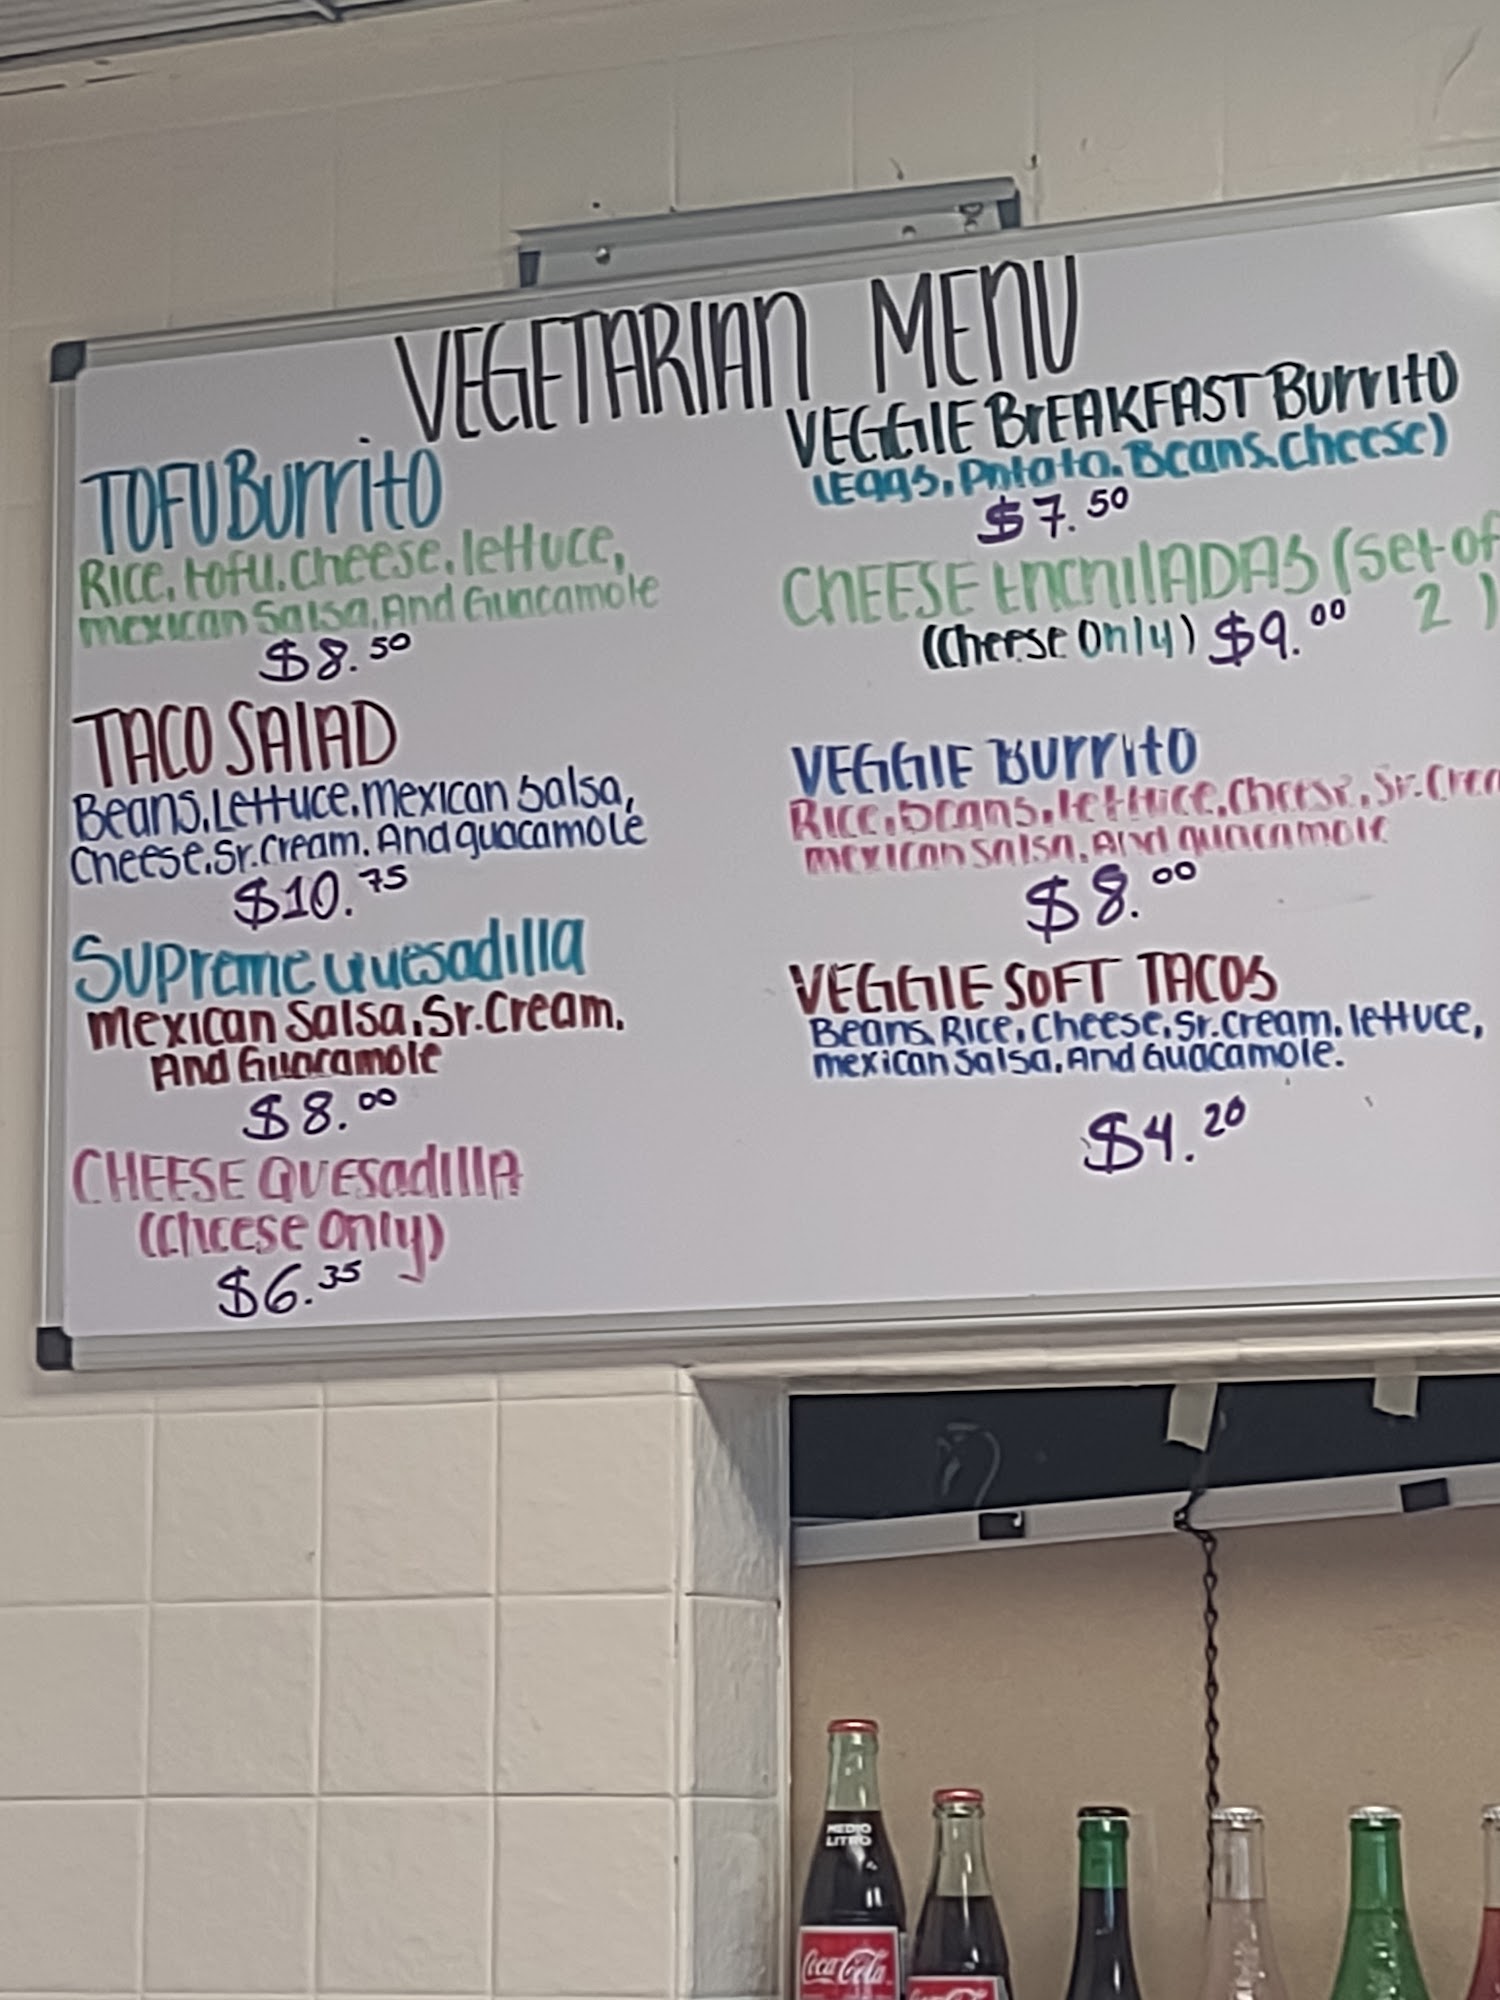 VEGETARIAN MENU
TOFU Burrito
Rice, tofu, cheese, lettuce,
mexican Salsa, And Guacamole
$8.50
TACO SALAD
Beans, Lettuce, mexican Salsa,
Cheese, Sr. Cream, And guacamole
$10.75
Supreme Quesadilla
mexican Salsa, Sr. Cream,
And Guacamole
$8.00
CHEESE QUESadillA
(Cheese Only)
$6.35
VEGGIE BrEAKFAST Burrito
(Eggs, Potato, Beans, Cheese)
$7.50
CHEESE EnchilADAS (Set of
2)
(Cheese Only) $9.00
VEGGIE Burrito
Rice, beans, lettuce, Cheese, Sr. Crea
mexican Salsa, And guacamole
$8.00
VEGGIE SOFT TACOS
Beans, Rice, Cheese, Sr. Cream, lettuce,
mexican Salsa, And Guacamole.
$4.20
MEDIO
LITRO
Coca-Cola
Coca-Cola